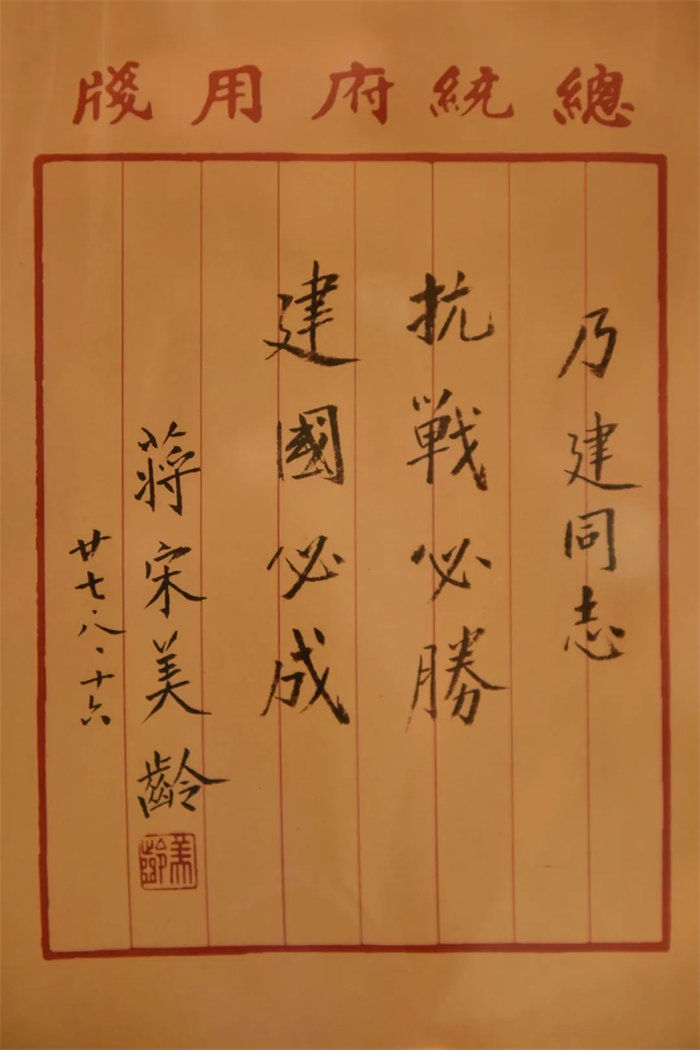 總統府用牋
乃建同志
抗戰必勝
建國必成
蔣宋美齡
美齡
廿七、八、十六